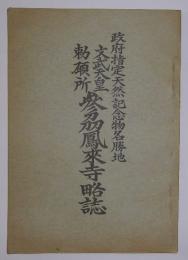 政府指定天然記念物名勝地
文武天皇
勅願所
参州鳳來寺略誌